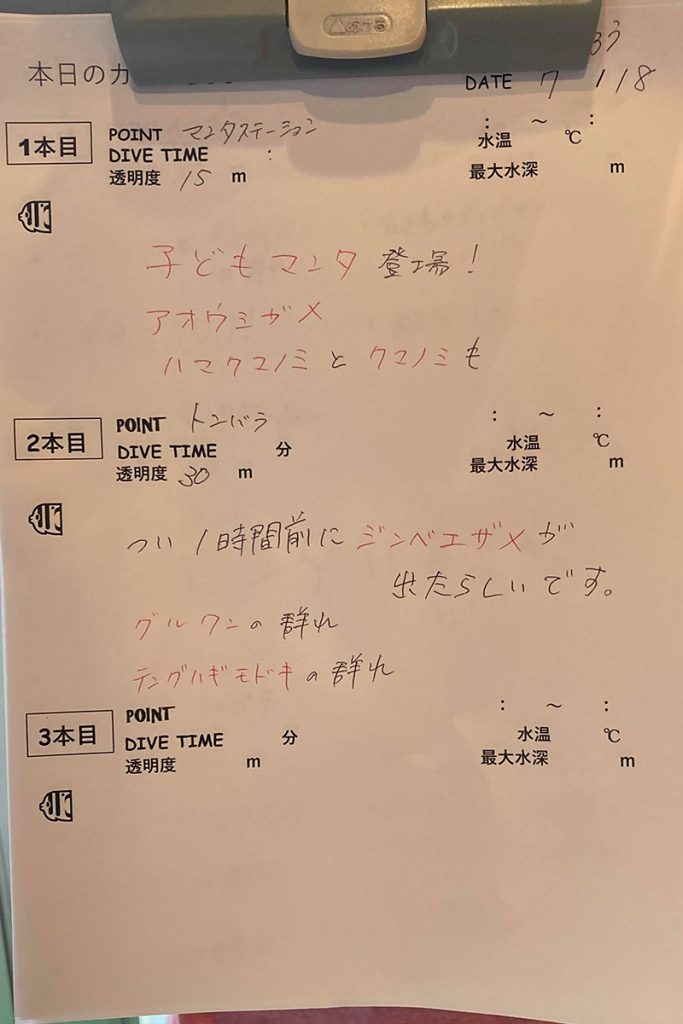 △あける
本日のカ
33
DATE 7 / 18
1本目
POINT マンタステーション
: ~ :
DIVE TIME :
水温 ℃
透明度 15 m
最大水深 m
子どもマンタ 登場!
アオウミガメ
ハマクマノミと クマノミも
2本目
POINT トンバラ
: ~ :
DIVE TIME 分
水温 ℃
透明度 30 m
最大水深 m
つい1時間前に ジンベエザメが
出たらしいです。
グルクンの 群れ
テングハギモドキの 群れ
3本目
POINT
: ~ :
DIVE TIME 分
水温 ℃
透明度 m
最大水深 m